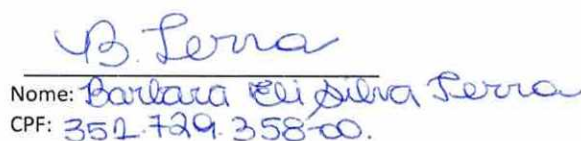 B. Serra
Nome: Barbara Eli Silva Serra
CPF: 352.729.358-00.